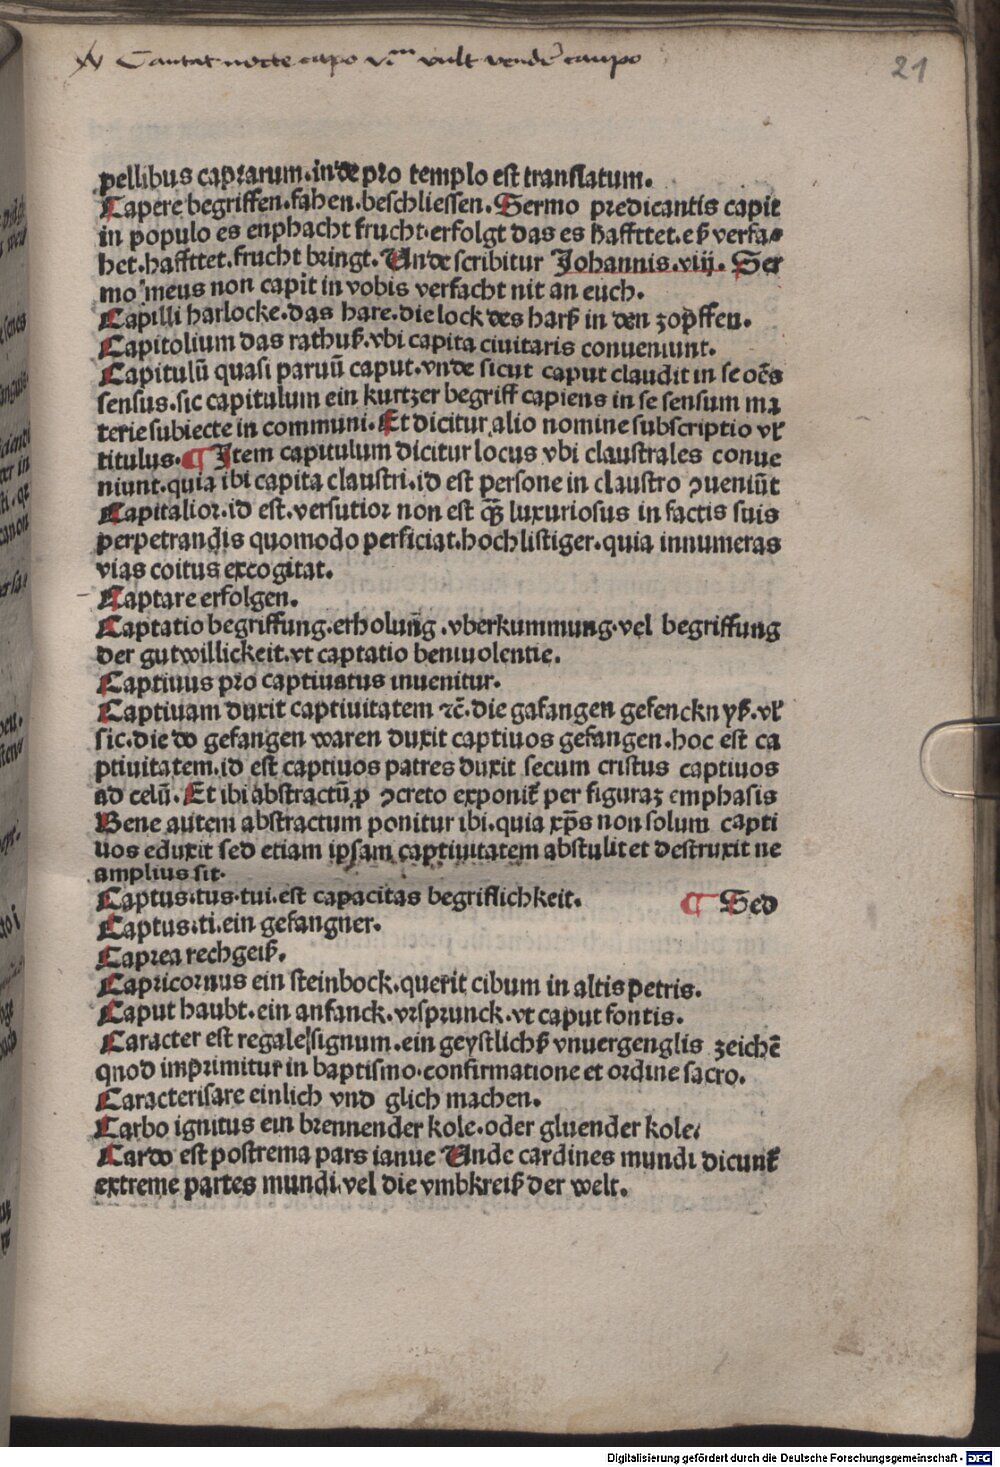 Cantat nocte capo vult vender caupo
21
pellibus caprarum.inde pro templo est translatum.
Capere begriffen.fahen.beschliessen.Sermo predicantis capit
in populo es enphacht frucht.erfolgt das es haffttet.eß verfa⸗
het.haffttet.frucht bringt.Unde scribitur Johannis.viij. Ser
mo meus non capit in vobis verfacht nit an euch.
Capilli harlocke.das hare.die lock des harß in den zopffen.
Capitolium das rathuß.vbi capita ciuitatis conueniunt.
Capitulū quasi paruū caput.vnde sicut caput claudit in se oēs
sensus.sic capitulum ein kurtzer begriff capiens in se sensum ma
terie subiecte in communi.Et dicitur alio nomine subscriptio vł
titulus.¶ Item capitulum dicitur locus vbi claustrales conue
niunt.quia ibi capita claustri.id est persone in claustro ꝯueniūt
Capitalior.id est.versutior non est qȝ luxuriosus in factis suis
perpetrandis quomodo perficiat.hochlistiger.quia innumeras
vias coitus excogitat.
Captare erfolgen.
Captatio begriffung.erholung.vberkummung.vel begriffung
der gutwillickeit.vt captatio beniuolentie.
Captiuus pro captiuatus inuenitur.
Captiuam duxit captiuitatem ⁊c̄.die gafangen gefencknyß.vł
sic.die do gefangen waren duxit captiuos gefangen.hoc est ca
ptiuitatem.id est captiuos patres duxit secum cristus captiuos
ad celū.Et ibi abstractū ꝓ ꝯcreto exponit᷑ per figuraȝ emphasis
Bene autem abstractum ponitur ibi.quia xp̄s non solum capti
uos eduxit sed etiam ipsam captiuitatem abstulit et destruxit ne
amplius sit.
Captus.tus.tui.est capacitas begriflichkeit. ¶ Sed
Captus.ti.ein gefangner.
Caprea rechgeiß.
Capricornus ein steinbock.querit cibum in altis petris.
Caput haubt.ein anfanck.vrsprunck.vt caput fontis.
Caracter est regale signum.ein geystlichß vnuergenglis zeichē
quod imprimitur in baptismo.confirmatione et ordine sacro.
Caracterisare einlich vnd glich machen.
Carbo ignitus ein brennender kole.oder gluender kole.
Cardo est postrema pars ianue Unde cardines mundi dicunt᷑
extreme partes mundi.vel die vmbkreiß der welt.
Digitalisierung gefördert durch die Deutsche Forschungsgemeinschaft - DFG